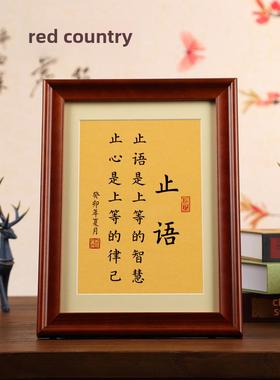 red country
止语
止语是上等的智慧
止心是上等的律己
癸卯年夏月